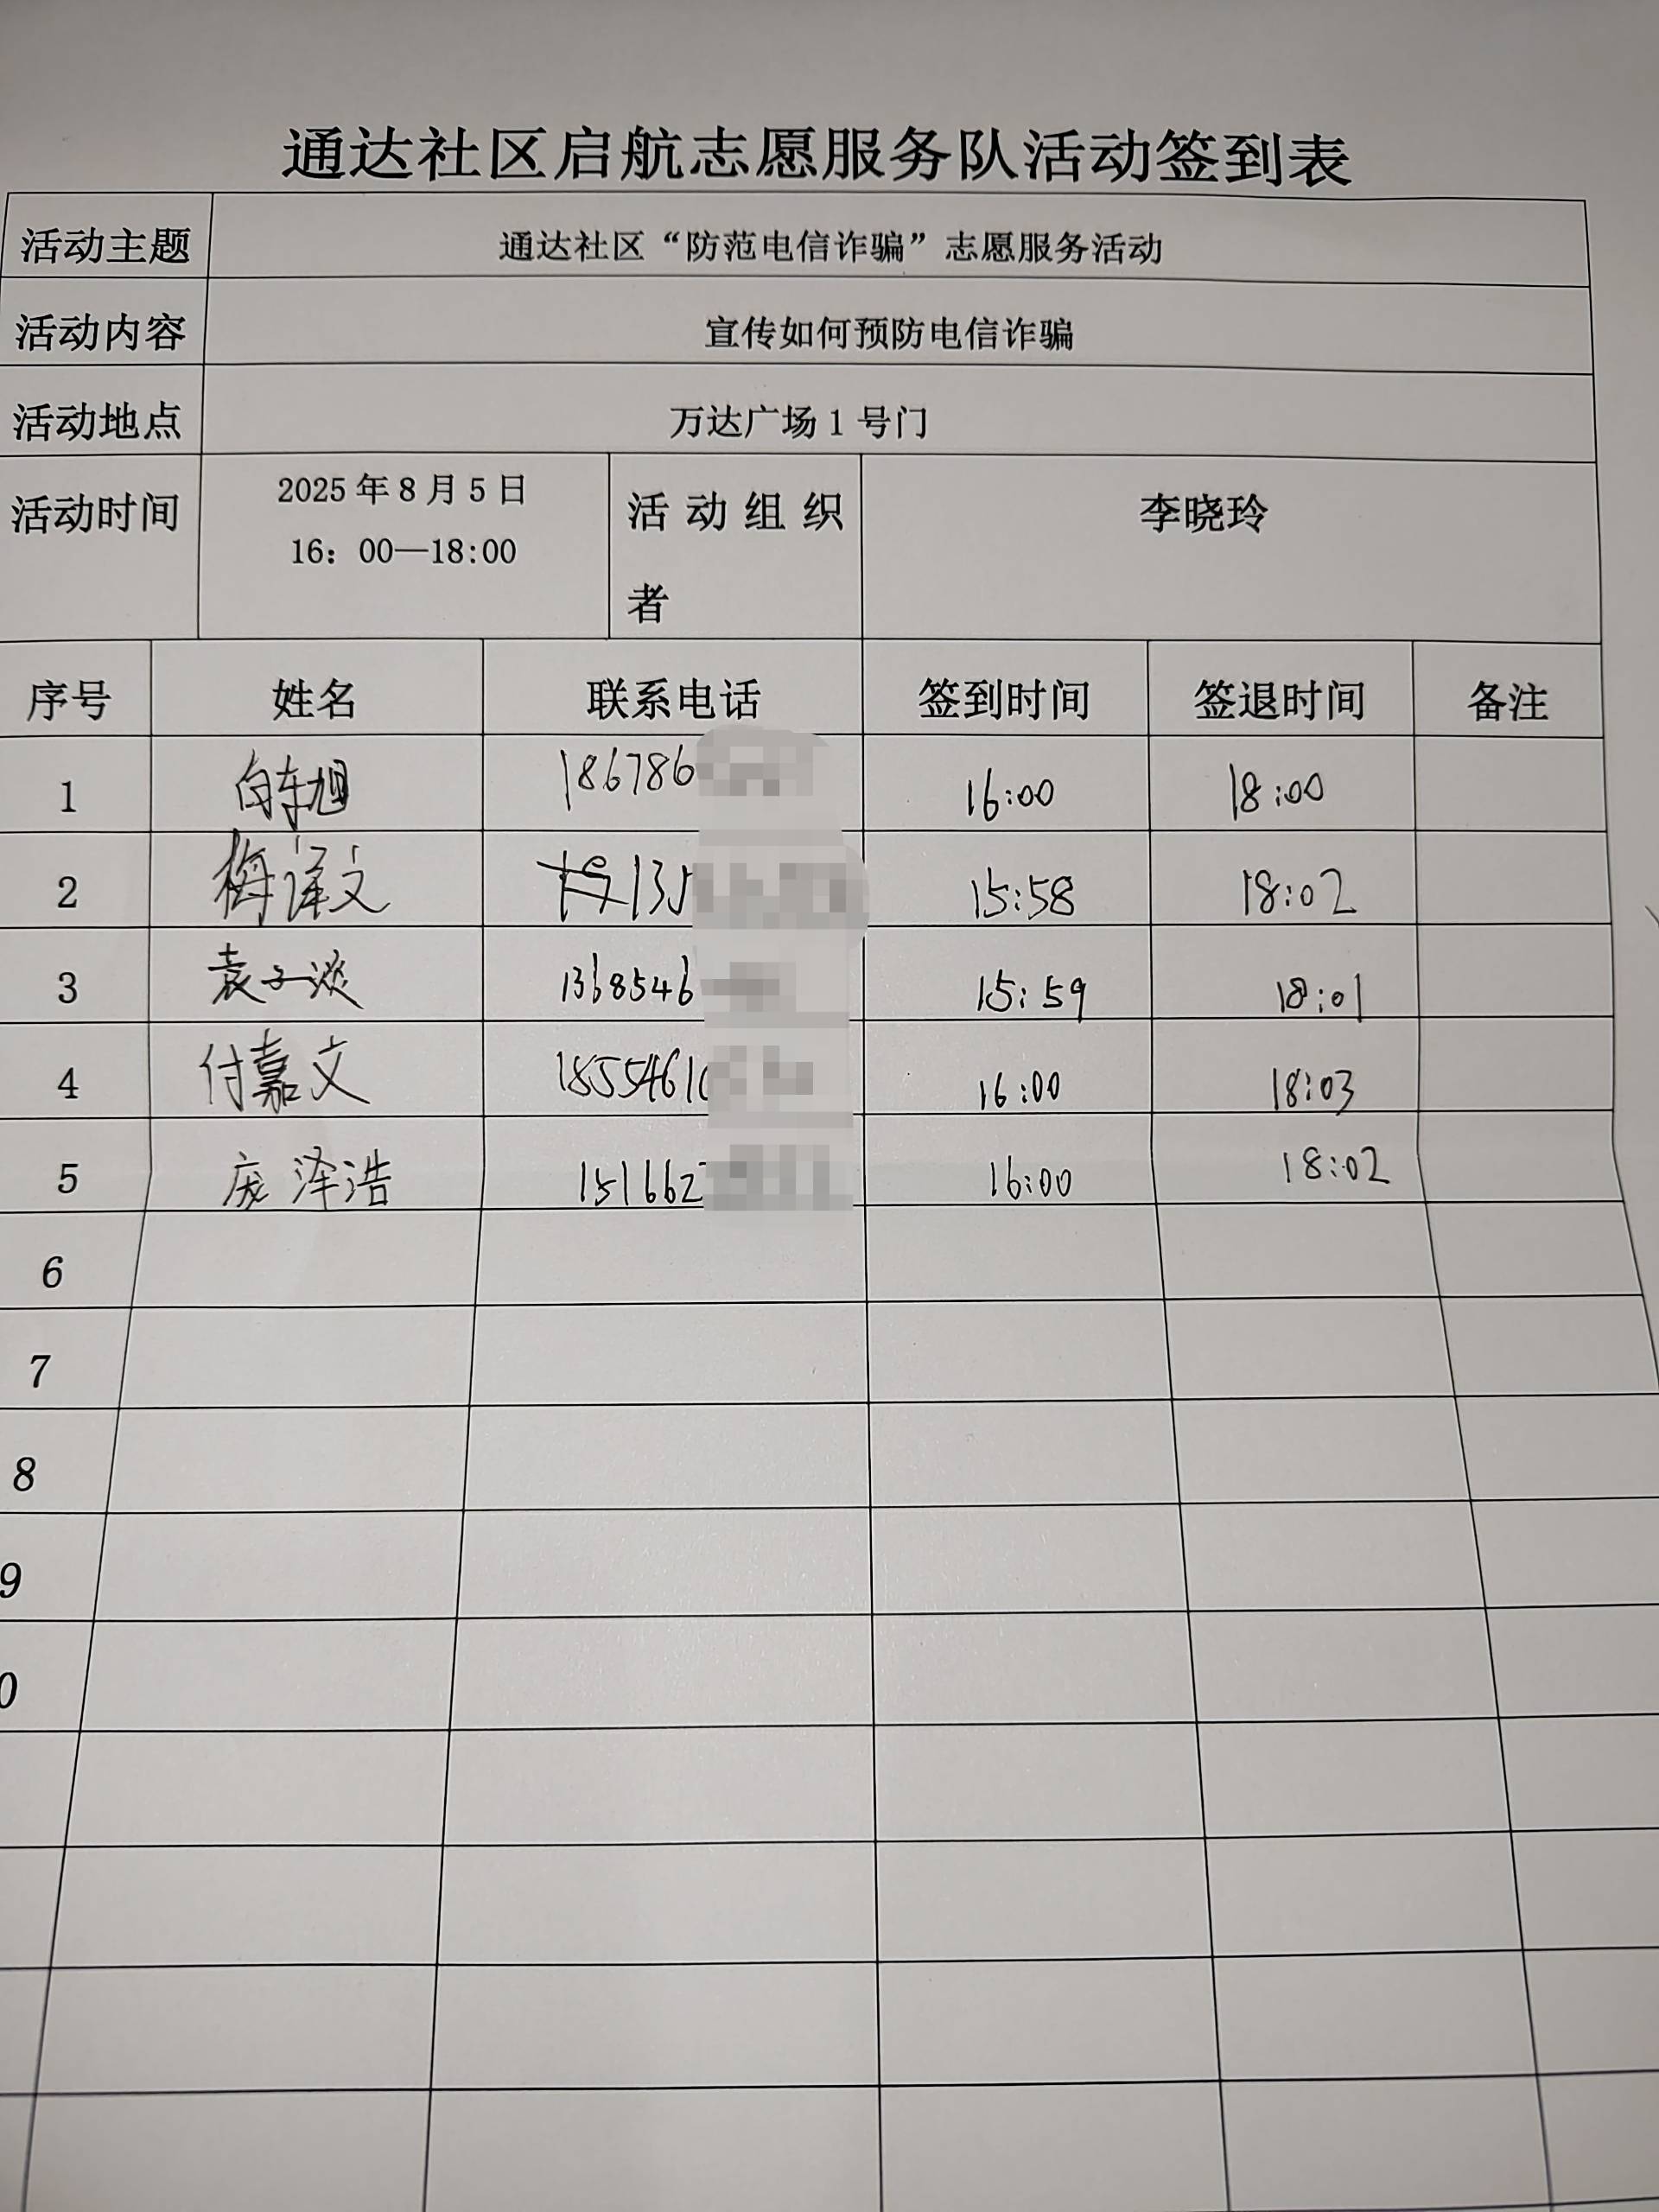 通达社区启航志愿服务队活动签到表
活动主题 通达社区“防范电信诈骗”志愿服务活动
活动内容 宣传如何预防电信诈骗
活动地点 万达广场1号门
活动时间 2025年8月5日
16：00—18:00
活动组织
者
李晓玲
序号 姓名 联系电话 签到时间 签退时间 备注
1 186786 16:00 18:00
2 梅译文 135 15:58 18:02
3 袁子淡 1368546 15:59 18:01
4 付嘉文 1855461 16:00 18:03
5 庞泽浩 151662 16:00 18:02
6
7
8
9
0